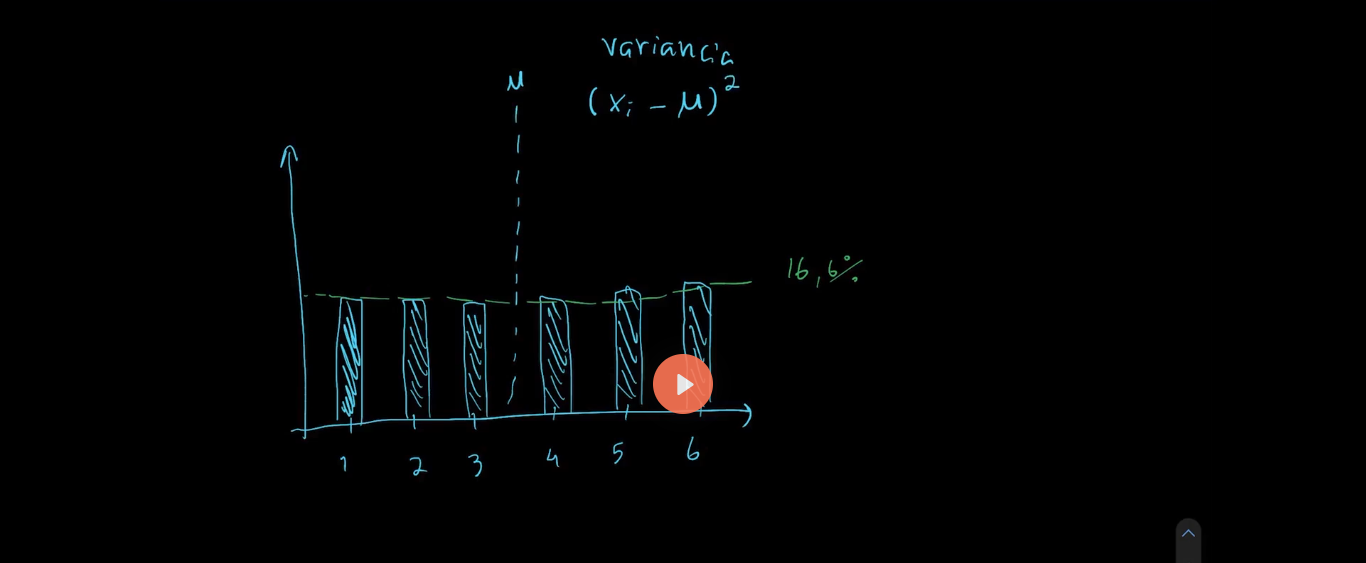 variancia
μ
(xi - μ)²
16,6%
1 2 3 4 5 6